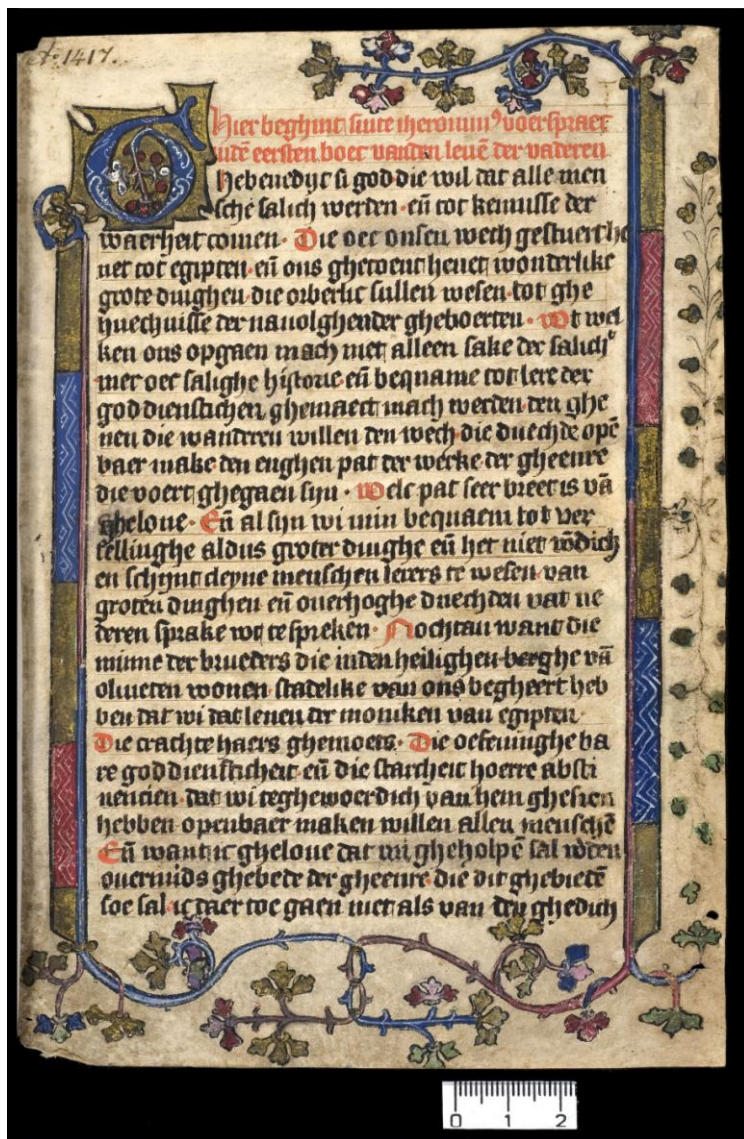 Aº. 1417.
Hier beghint sinte iheronimꝰ voerspraec
indē eersten boec vanden levē der vaderen
Ghebenedijt si god die wil dat alle men
sche salich werden. eñ tot kennisse der
waerheit comen. Die oec onsen wech gestuert he
uet tot egipten. eñ ons ghetoent heuet wonderlike
grote dinghen. die orberlic sullen wesen. tot ghe
huechnisse der nauolghender gheboerten. wt wel
ken ons opgaen mach niet alleen sake der salich
mer oec salighe historie. eñ bequame tot lere der
god dienstichen ghemaect mach werden. den ghe
nen die wanderen willen den wech. die duechde opē
baer make den enghen pat der werke der gheenre
die voert ghegaen sijn. welc pat seer breet is vā
gheloue. Eñ al sijn wi min bequaem tot ver
tellinghe aldus groter dinghe eñ het niet
en schijnt cleyne menschen lerers te wesen van
groten dinghen eñ ouerhoghe duechden vat ne
deren sprake wt te spreken. Nochtan want die
minne der brueders die inden heilighen berghe vā
oliueten wonen stadelike van ons begheert heb
ben dat wi dat leuen der moniken van egipten.
Die crachte haers ghemoets. Die oefeninghe ha
re god diensticheit. eñ die starcheit hoerre absti
nencien. dat wi teghewoerdich van hem ghesien
hebben openbaer maken willen allen menschē
Eñ want ic gheloue dat mi gheholpē sal
ouermids ghebede der gheenre. die dit ghebietē
soe sal ic daer toe gaen niet als van den ghedich
0 1 2